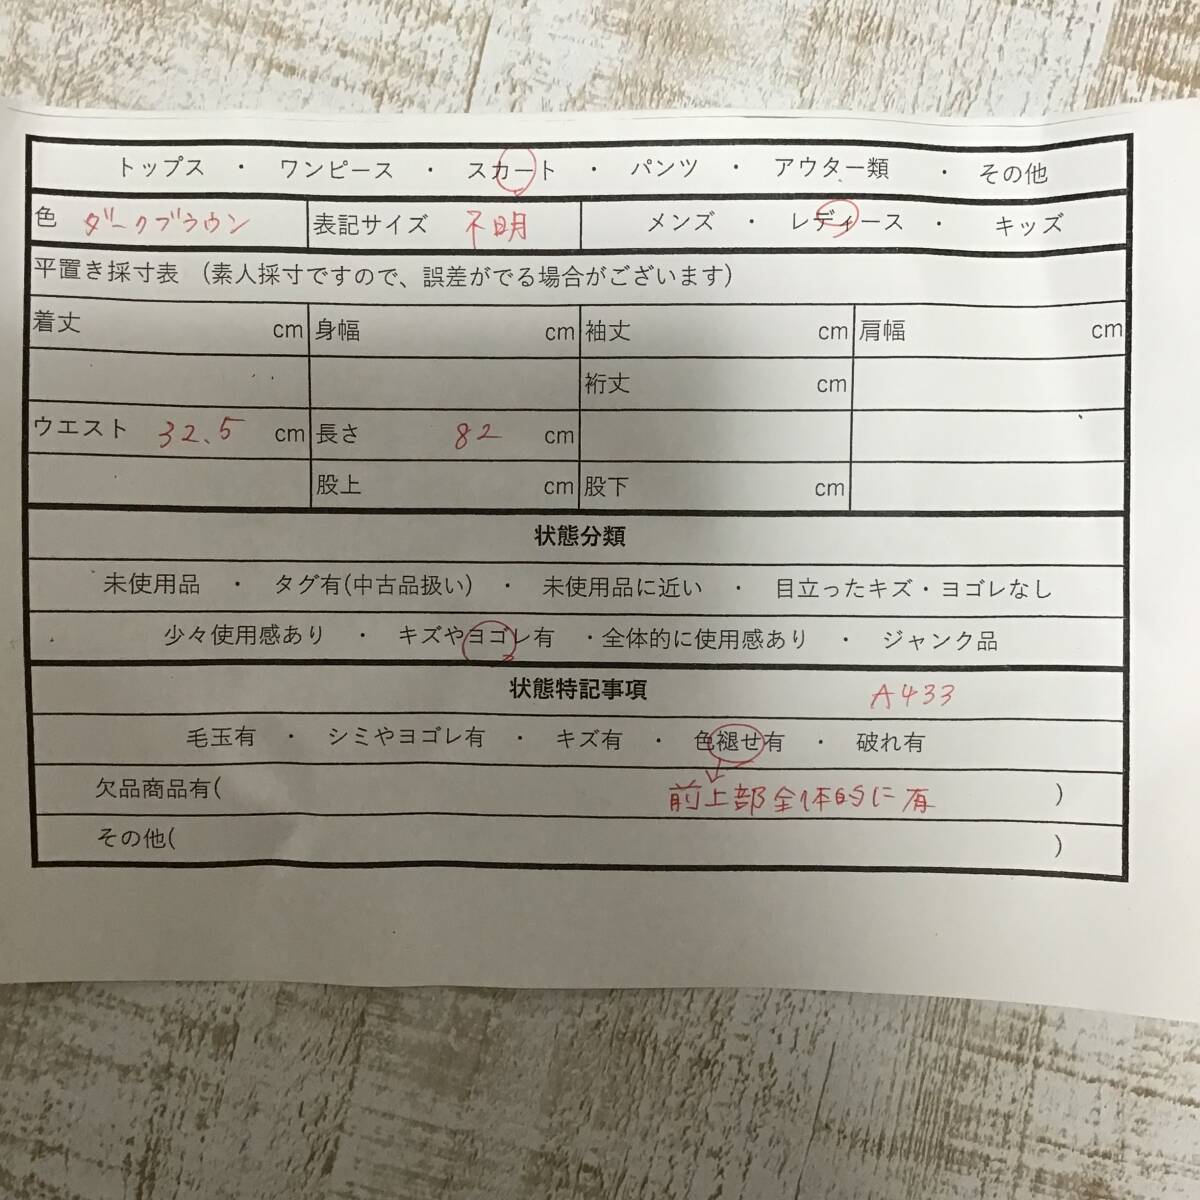 トップス ・ ワンピース ・ スカート ・ パンツ ・ アウター類 ・ その他
色 ダークブラウン 表記サイズ 不明 メンズ ・ レディース ・ キッズ
平置き採寸表 (素人採寸ですので、誤差がでる場合がございます)
着丈 cm 身幅 cm 袖丈 cm 肩幅 cm
裄丈 cm
ウエスト 32.5 cm 長さ 82 cm
股上 cm 股下 cm
状態分類
未使用品 ・ タグ有(中古品扱い) ・ 未使用品に近い ・ 目立ったキズ・ヨゴレなし
少々使用感あり ・ キズやヨゴレ有 ・全体的に使用感あり ・ ジャンク品
状態特記事項 A433
毛玉有 ・ シミやヨゴレ有 ・ キズ有 ・ 色褪せ有 ・ 破れ有
欠品商品有( 前上部全体的に有 )
その他( )